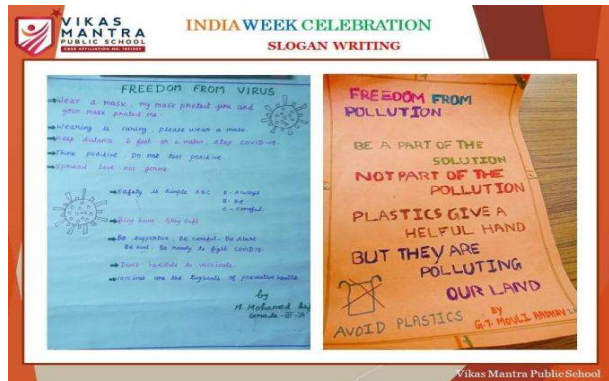 VIKAS
MANTRA
PUBLIC SCHOOL
INDIA WEEK CELEBRATION
SLOGAN WRITING
FREEDOM FROM VIRUS
Wear a mask, my mask protect you and
your mask protect me.
Wearing is caring, please wear a mask.
Keep distance 6 feet or 2 meter, stop COVID19.
Think positive. Do not test positive.
Spread love not germs.
Safety is simple ABC A - Always
B - Be
C - Careful.
Stay home, Stay safe
Be supportive. Be careful. Be alert
Be kind. Be ready to fight COVID19.
Don't hesitate to vaccinate.
Vaccines are the tugboats of preventive health.
by
M. Mohamed
Grade
FREEDOM FROM
POLLUTION
BE A PART OF THE
SOLUTION
NOT PART OF THE
POLLUTION
PLASTICS GIVE A
HELFUL HAND
BUT THEY ARE
POLLUTING
OUR LAND
BY
G.T. MOULI
AVOID PLASTICS
Vikas Mantra Public School